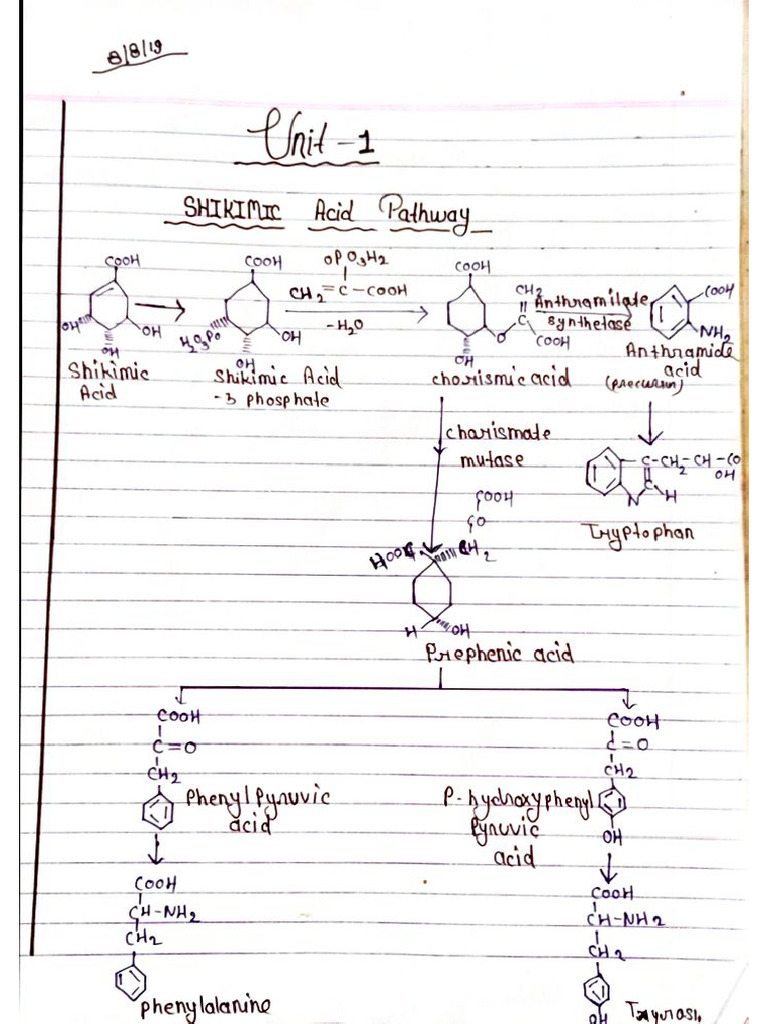 8/8/19
Unit-1
SHIKIMIC Acid Pathway
COOH
OH
OH
OH
Shikimic
Acid
COOH
H2O3Po
OH
OH
Shikimic Acid
-3 phosphate
OPO3H2
CH2=C-COOH
-H2O
COOH
CH2
C
O
COOH
OH
chorismic acid
Anthramilate
synthetase
COOH
NH2
Anthramide
acid
(precursor)
charismate
mutase
C-CH2-CH-CO
OH
C
N
H
Tryptophan
COOH
CO
HOOC
CH2
H
OH
Prephenic acid
COOH
C=O
CH2
Phenyl Pyruvic
acid
COOH
C=O
CH2
OH
P-hydroxyphenyl
Pyruvic
acid
COOH
CH-NH2
CH2
phenylalanine
COOH
CH-NH2
CH2
OH